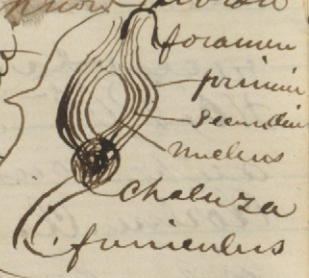 foramen
primin
secundin
nucleus
Chalaza
funiculus